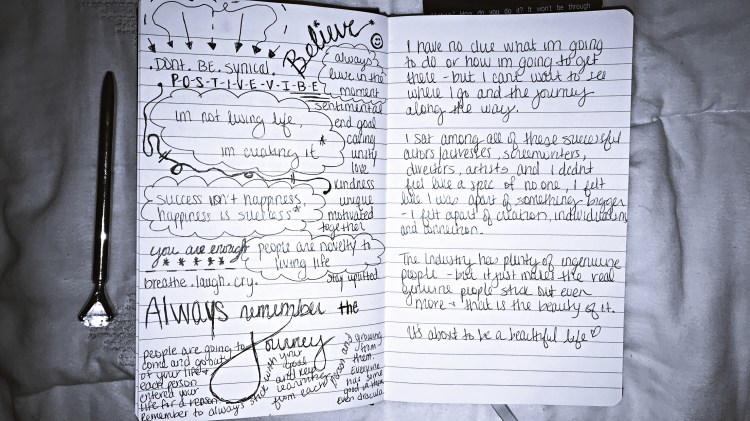 Believe
.Dont. BE. synical.
P-O-S-T-I-V-E-V-I-B-E
always
live in the
moment
im not living life,
im creating it*
sentimental
end goal
caring
unity
love
kindness
unique
motivated
together
success isn't happiness,
happiness is success*
you are enough
*****
people are novelty to
living life
stay uplifted
breathe.laugh.cry.
Always remember the
Journey
people are going to
come and go out
of your life +
each person
entered your
life for a reason
Remember to always stick with your
gose
and keep
learning
from each person and growing
from
them.
Everyone
has some
good in them
even dracula
How do you do it? It won't be through
I have no clue what im going
to do or how im going to get
there - but I cant wait to see
where I go and the journey
along the way.
I sat among all of these successful
actors/actresses, screenwriters,
directors, artists and I didnt
feel like a spec of no one, I felt
like I was apart of something bigger
- I felt apart of creation, individualism
and connection.
The Industry has plenty of ingenuine
people - but it just makes the real
genuine people stick out even
more + that is the beauty of it.
It's about to be a beautiful life ♡